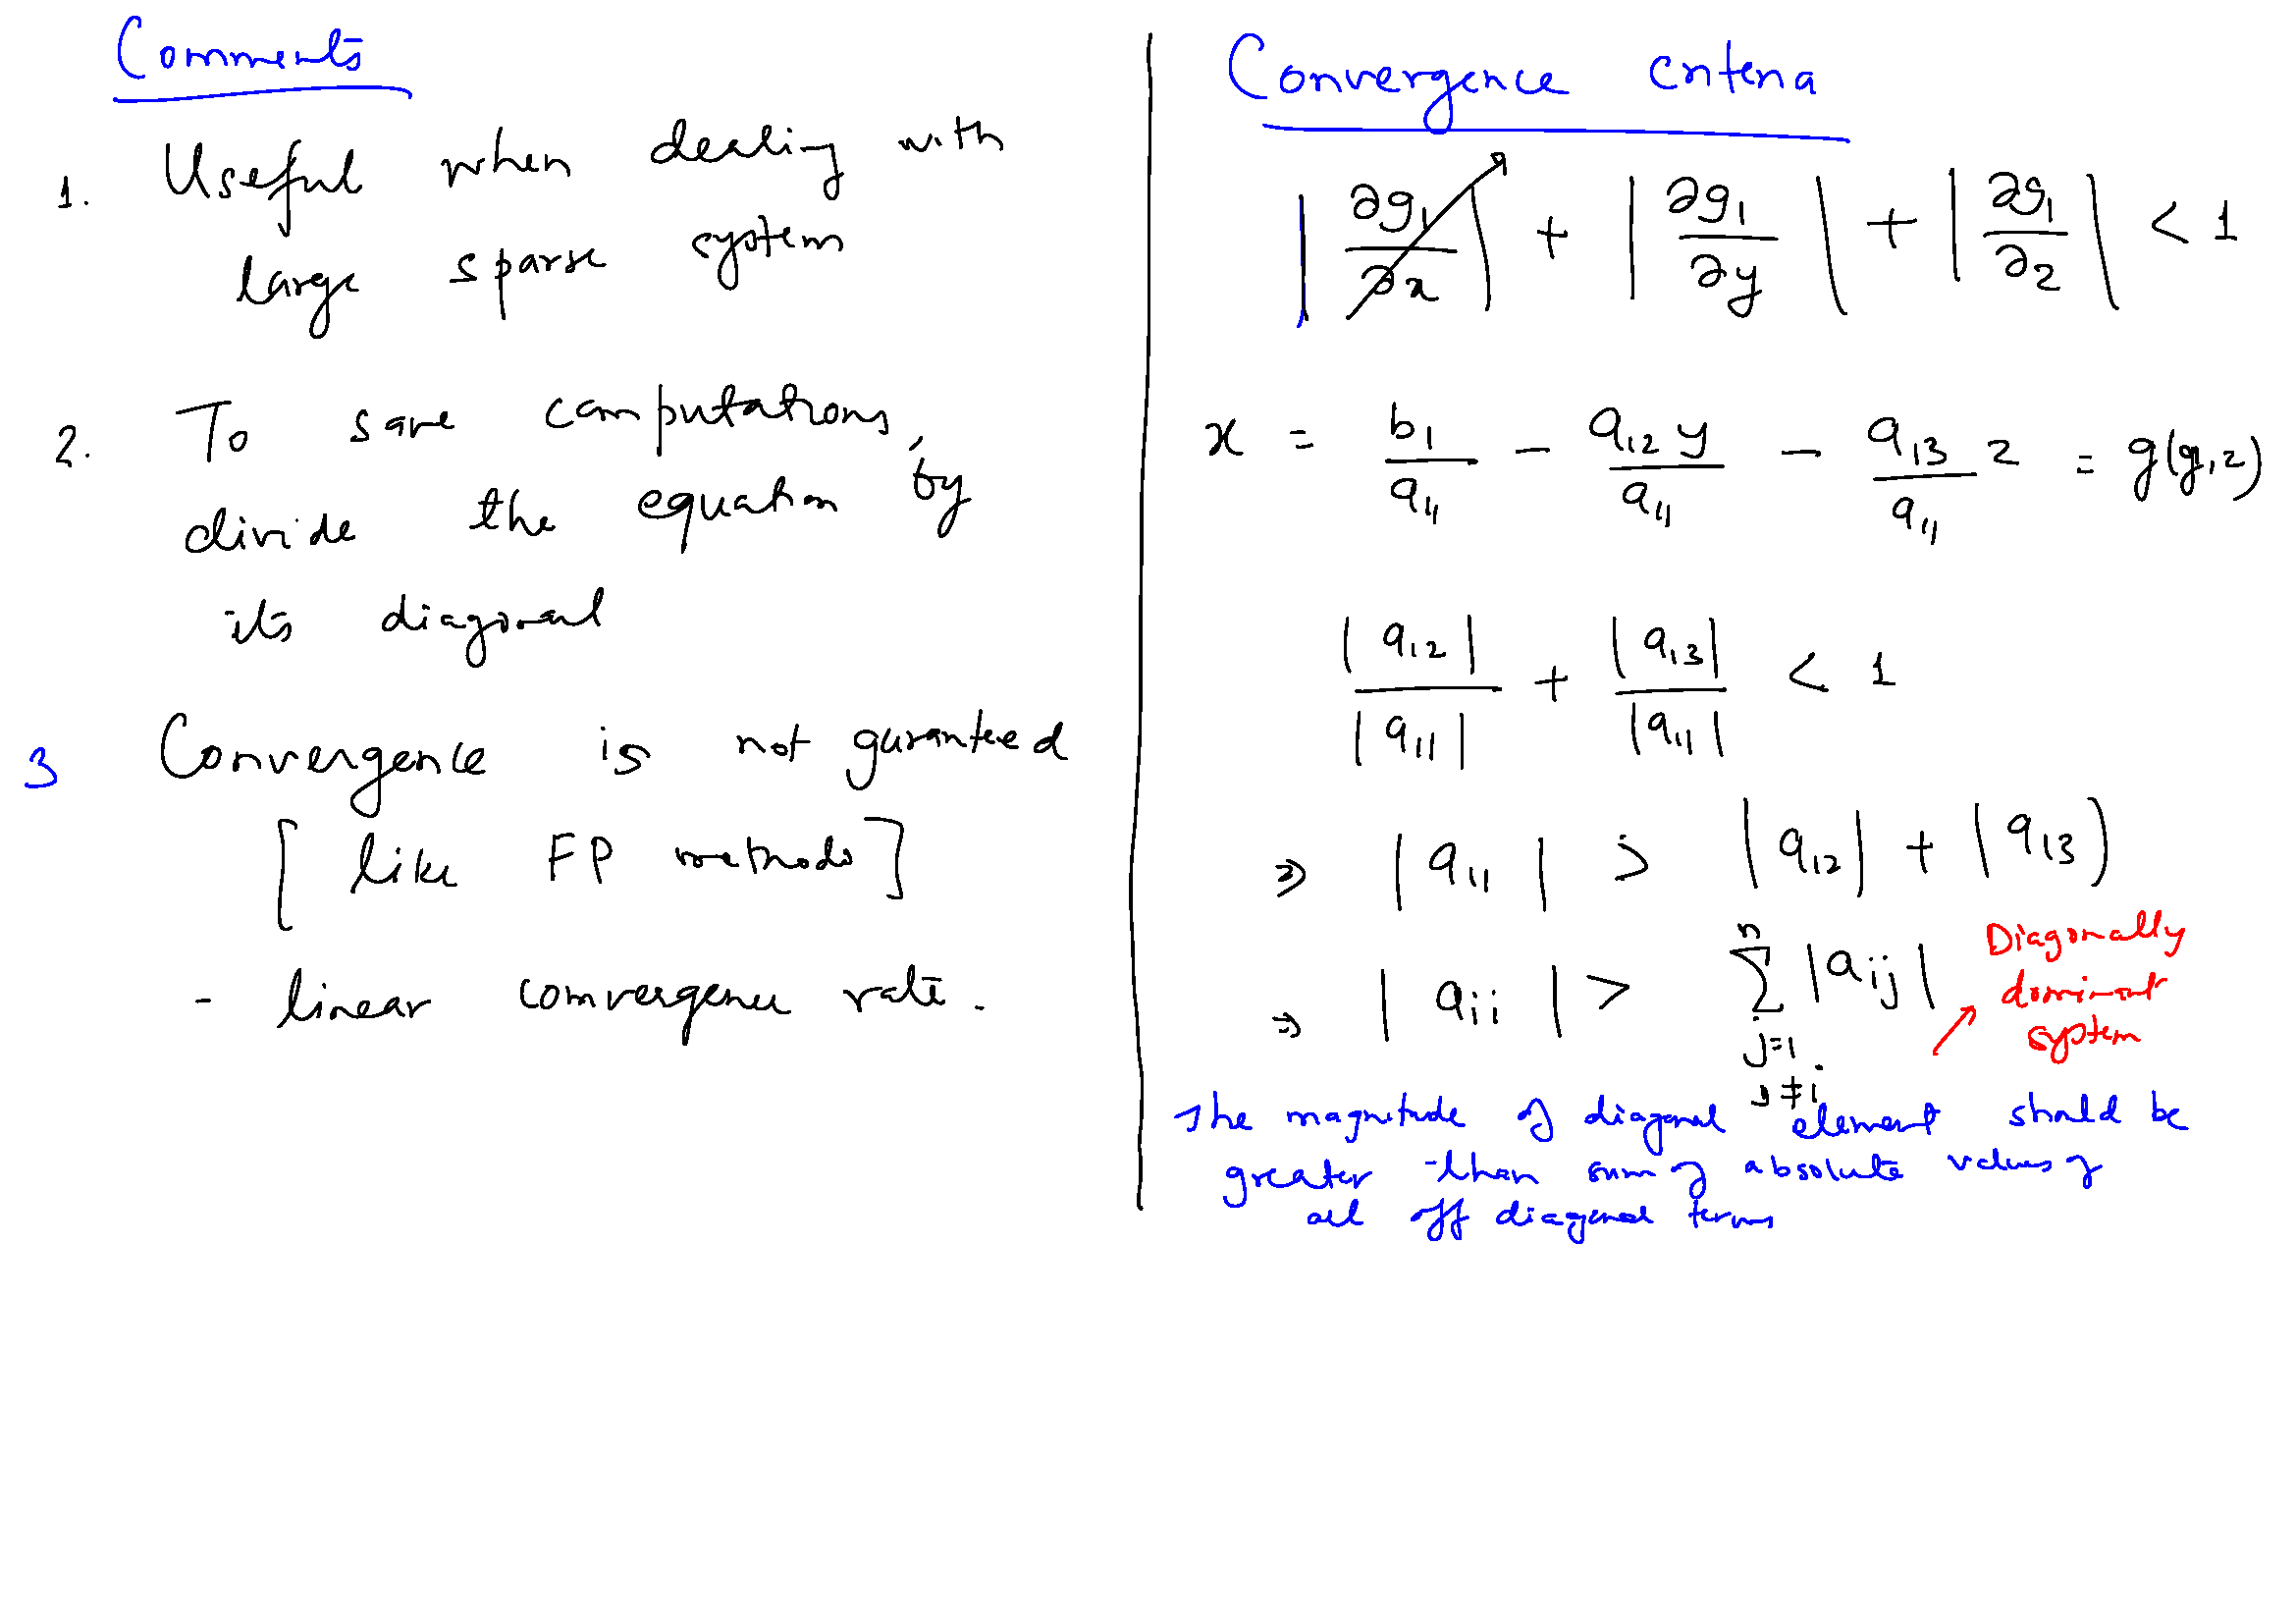 Comments
1. Useful when dealing with
large sparse system
2. To save computations,
divide the equation by
its diagonal
3 Convergence is not guranteed
[ like FP methods ]
- linear convergence rate.
Convergence criteria
|∂g₁/∂x| + |∂g₁/∂y| + |∂g₁/∂z| < 1
x = b₁/a₁₁ - a₁₂ y/a₁₁ - a₁₃ z/a₁₁ = g(y,z)
|a₁₂|/|a₁₁| + |a₁₃|/|a₁₁| < 1
⇒ |a₁₁| > |a₁₂| + |a₁₃|
⇒ |aᵢᵢ| > n Σ j=1 j≠i |aᵢⱼ|
Diagonally
dominant
system
The magnitude of diagonal element should be
greater than sum of absolute values of
all off diagonal terms